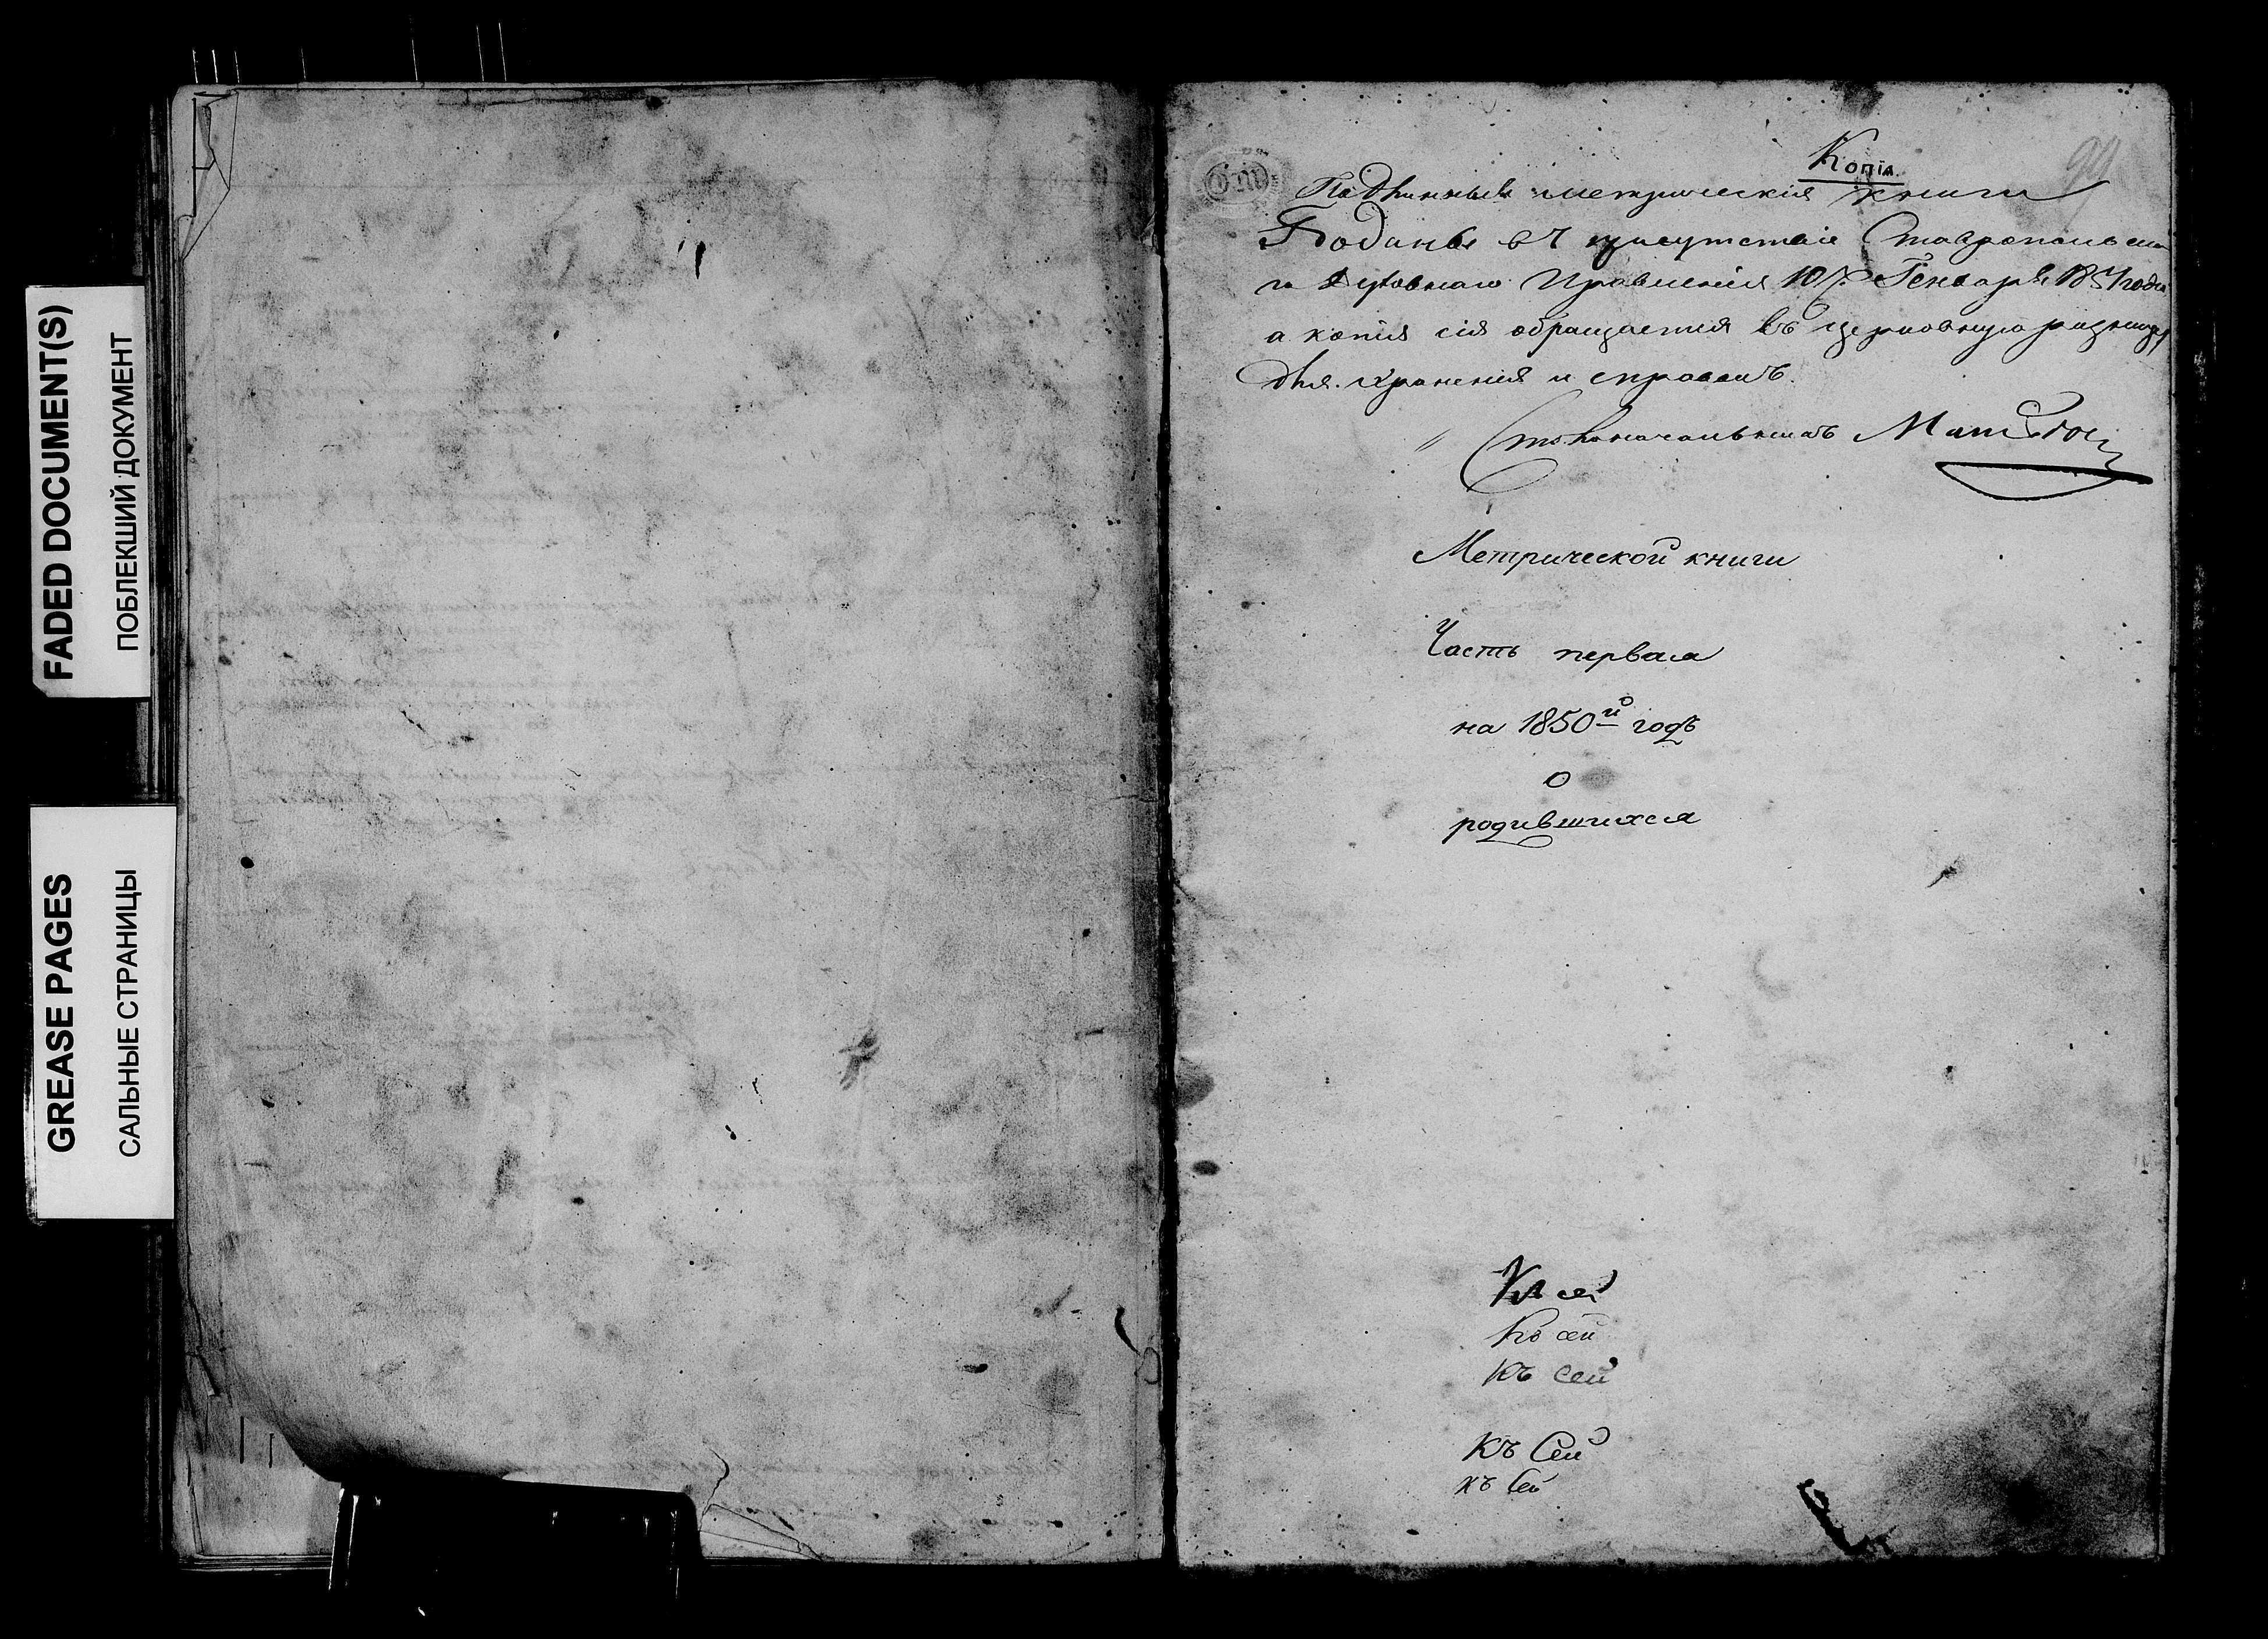 FADED DOCUMENT(S)
ПОБЛЕКШИЙ ДОКУМЕНТ
GREASE PAGES
САЛЬНЫЕ СТРАНИЦЫ
Копія
Подлинныя метрическія книги
Поданы въ присутствіе Ставропольска
го Духовнаго Правленія 10 Генваря 1851 года
а копія сія обращается въ церковную ризницу
для храненія и справокъ.
Столоначальникъ
Метрической книги
Часть первая
на 1850й годъ
о
родившихся
Къ сей
Къ сей
Къ сей
Къ Сей
къ Сей